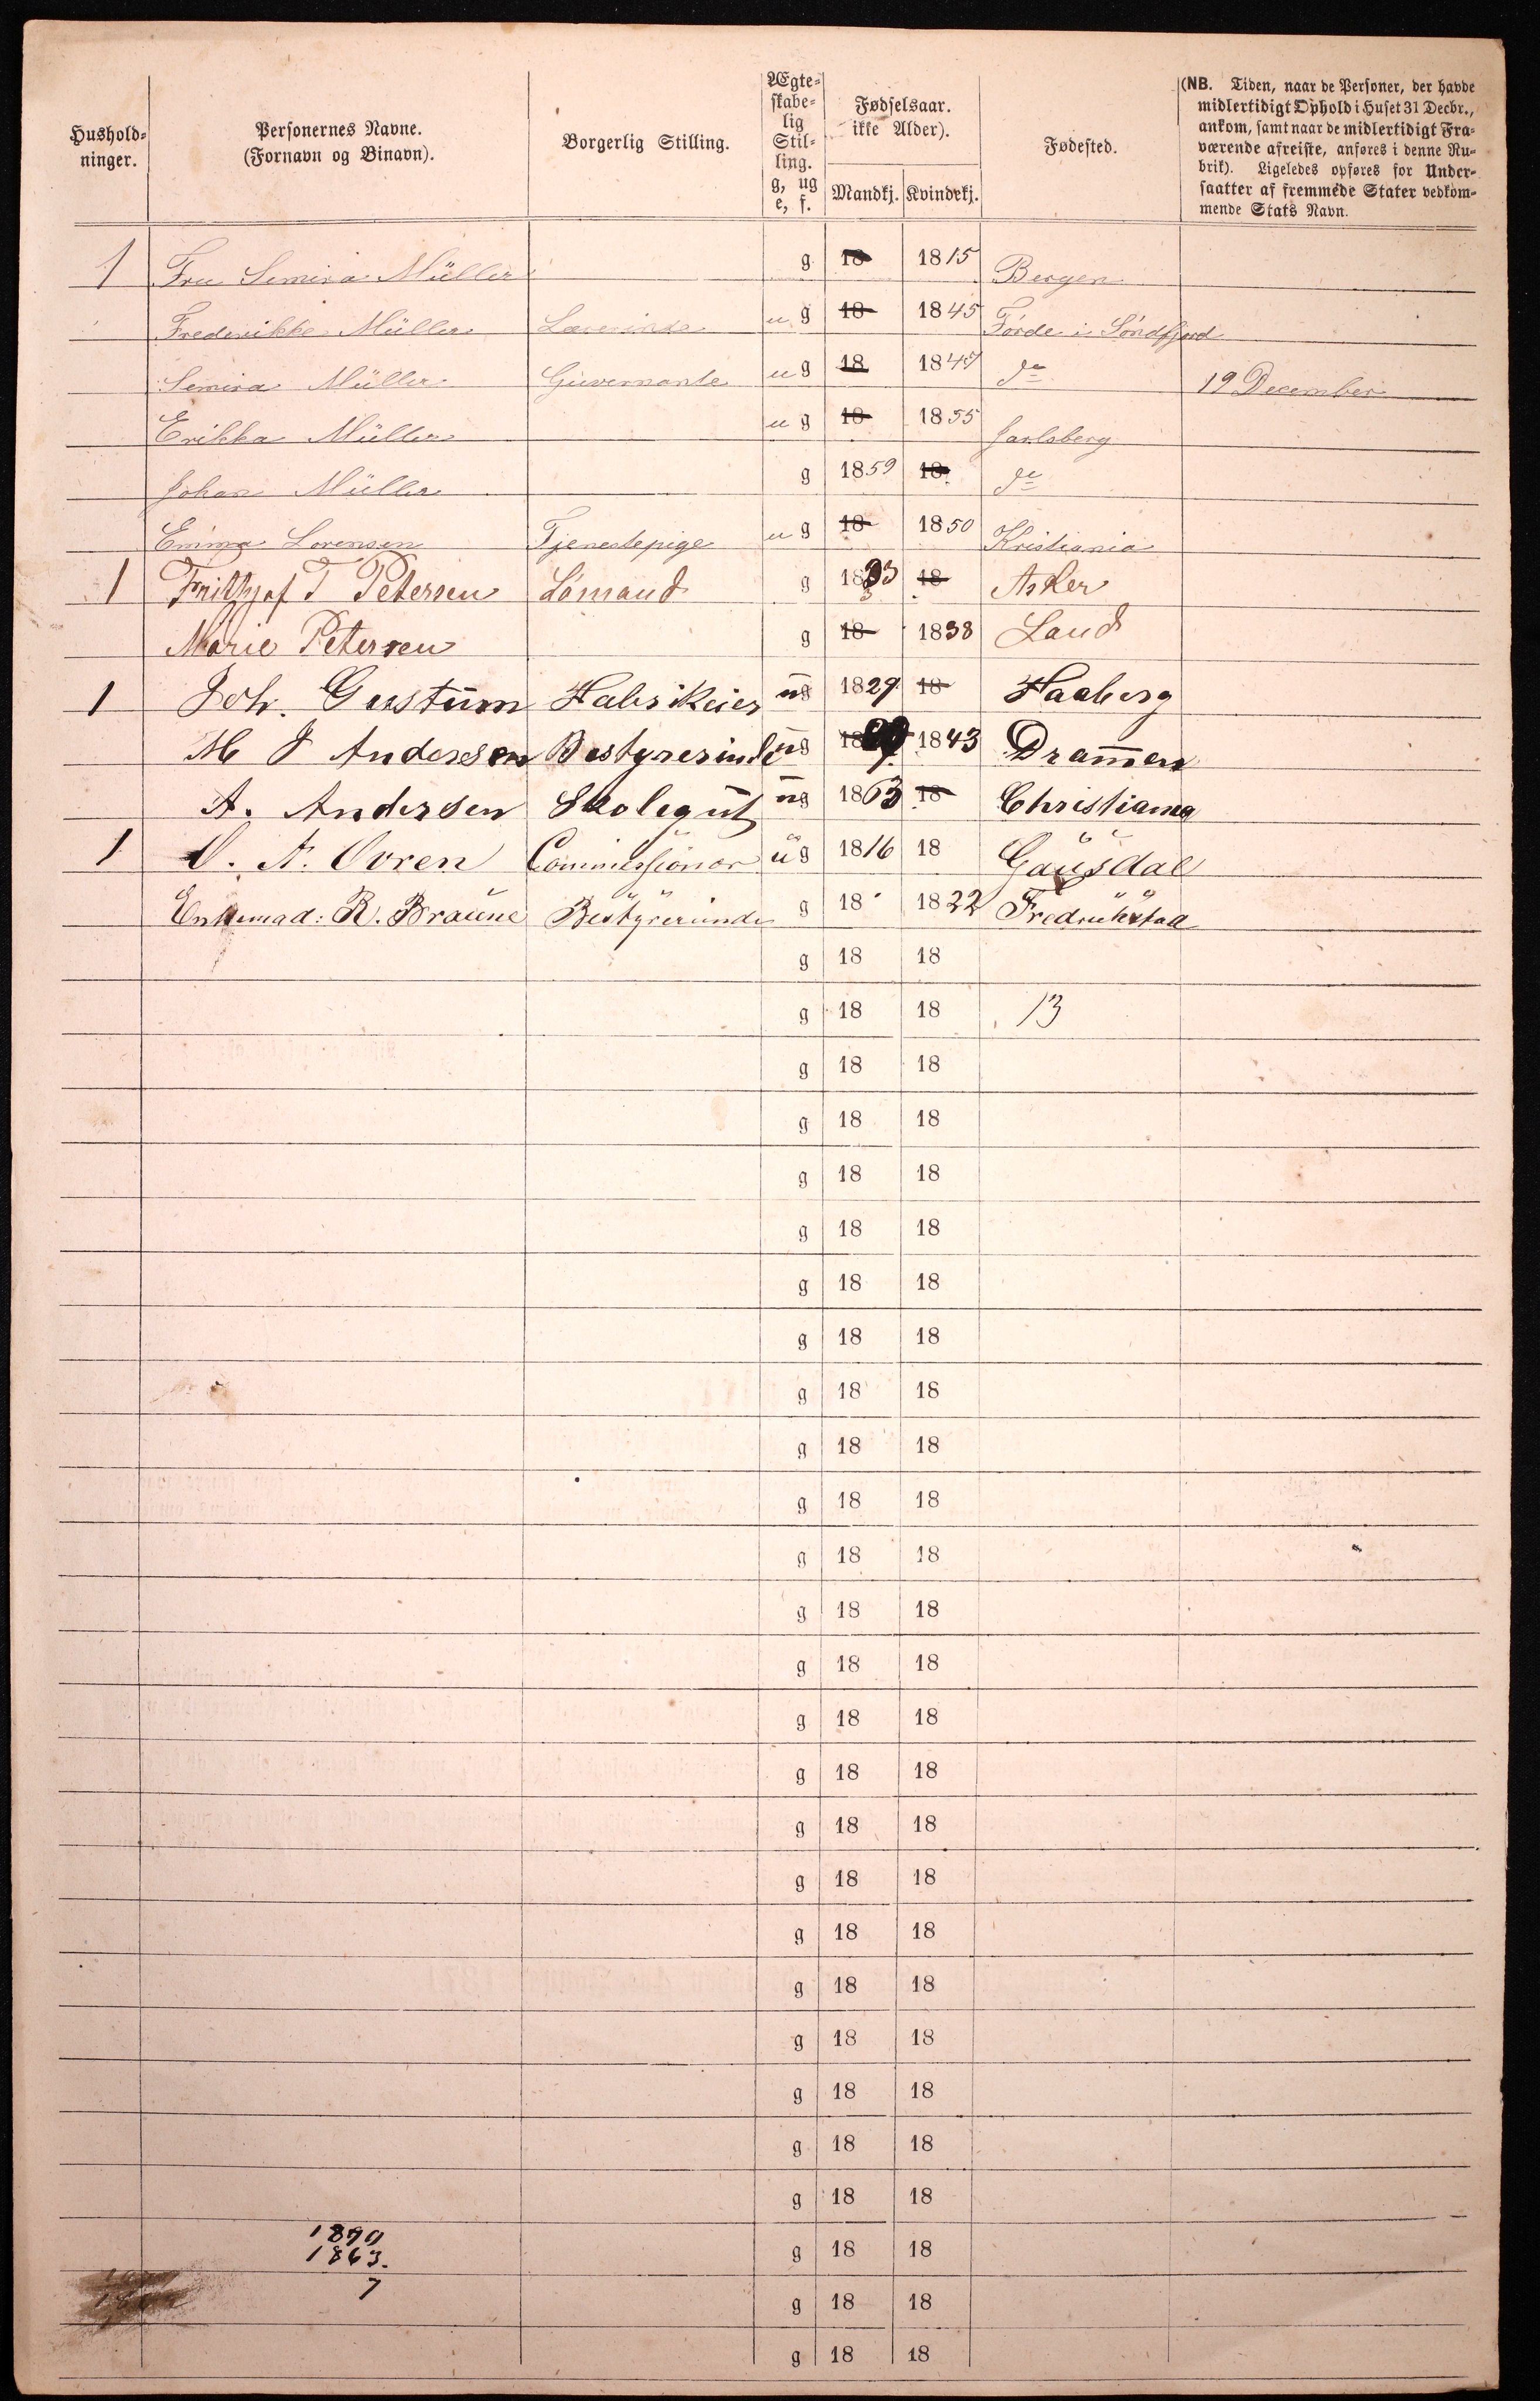 Hushold-
ninger.
Personernes Navne.
(Fornavn og Binavn).
Borgerlig Stilling.
Ægte-
skabe-
lig
Stil-
ling.
g, ug
e, f.
Fødselsaar.
ikke Alder).
Mandkj. Kvindekj.
Fødested.
(NB. Tiden, naar de Personer, der havde
midlertidigt Ophold i Huset 31 Decbr.,
ankom, samt naar de midlertidigt Fra-
værende afreiste, anføres i denne Ru-
brik). Ligeledes opføres for Under-
saatter af fremmede Stater vedkom-
mende Stats Navn.
1 Fru Semira Müller g 18 1815 Bergen
Frederikke Müller Lærerinde u g 18 1845 Førde i Søndfjord
Semira Müller Guvernante u g 18 1847 do 19 December
Erikka Müller u g 18 1855 Jarlsberg
Johan Müller g 1859 18 do
Emma Lorensen Tjenestepige u g 18 1850 Kristiania
1 Frithjof T Petersen Lømand g 1833 18 Asker
Marie Petersen g 18 1838 Land
1 Joh. Gustum Fabrikeier ug 1829 18 Haaberg
M J Anderssen Bestyrerinde ug 18 1843 Drammen
A. Andersen Skolegut ug 1863 18 Christiania
1 O. A. Ovren Commissionær ug 1816 18 Gausdal
Enkemad: R. Braune Bestyrerinde g 18 1822 Fredrikstad
g 18 18
g 18 18 13
g 18 18
g 18 18
g 18 18
g 18 18
g 18 18
g 18 18
g 18 18
g 18 18
g 18 18
g 18 18
g 18 18
g 18 18
g 18 18
g 18 18
g 18 18
g 18 18
g 18 18
g 18 18
g 18 18
g 18 18
g 18 18
g 18 18
1870
1863.
g 18 18
7
g 18 18
g 18 18